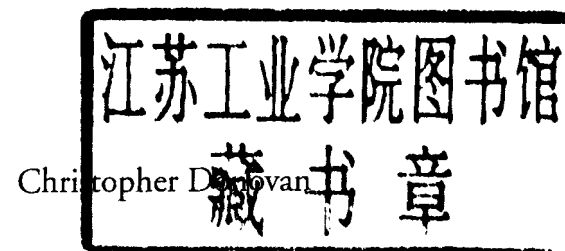 江苏工业学院图书馆
Christopher Donovan
藏书章